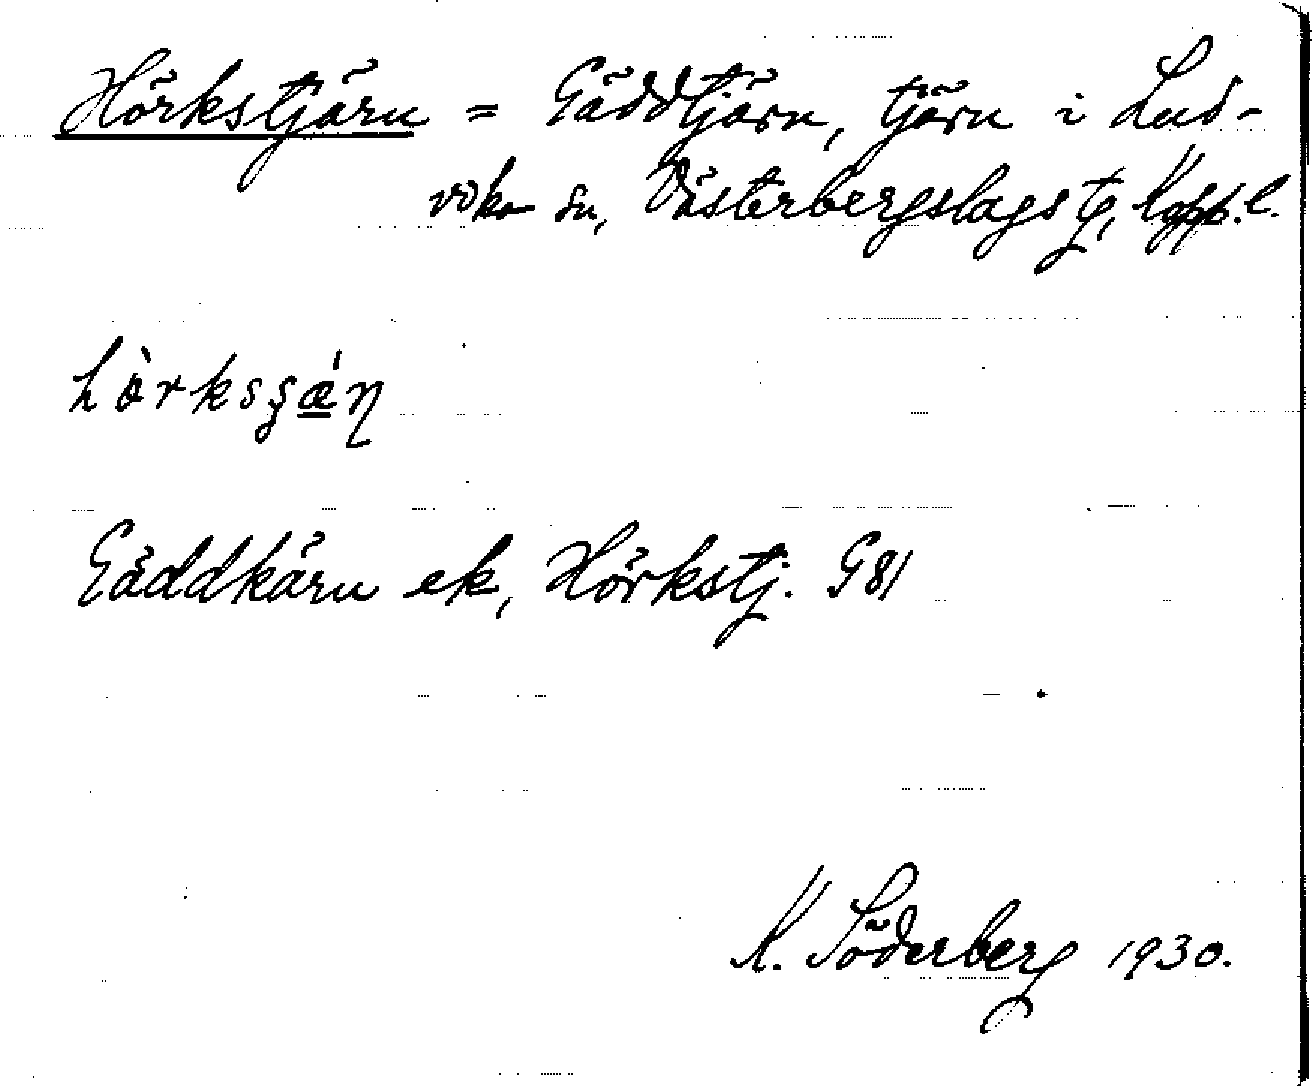 Hörkstjärn = Gäddtjärn, tjärn i Lud-
vika sn, Västerbergslags tg, Kopp. l.
Gäddkärn ek, Hörkstj. G81
K. Söderberg 1930.